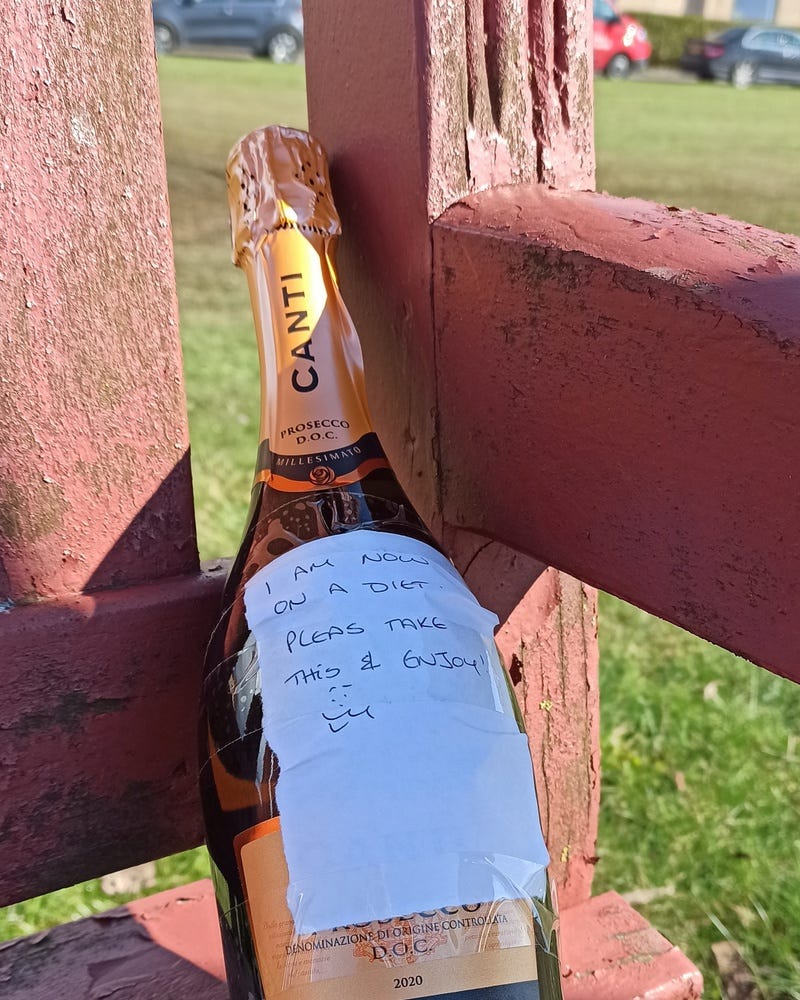 CANTI
PROSECCO
D.O.C.
MILLESIMATO
I AM NOW
ON A DIET.
PLEAS TAKE
THIS & ENJOY!
PROSECCO
DENOMINAZIONE DI ORIGINE CONTROLLATA
D.O.C.
2020